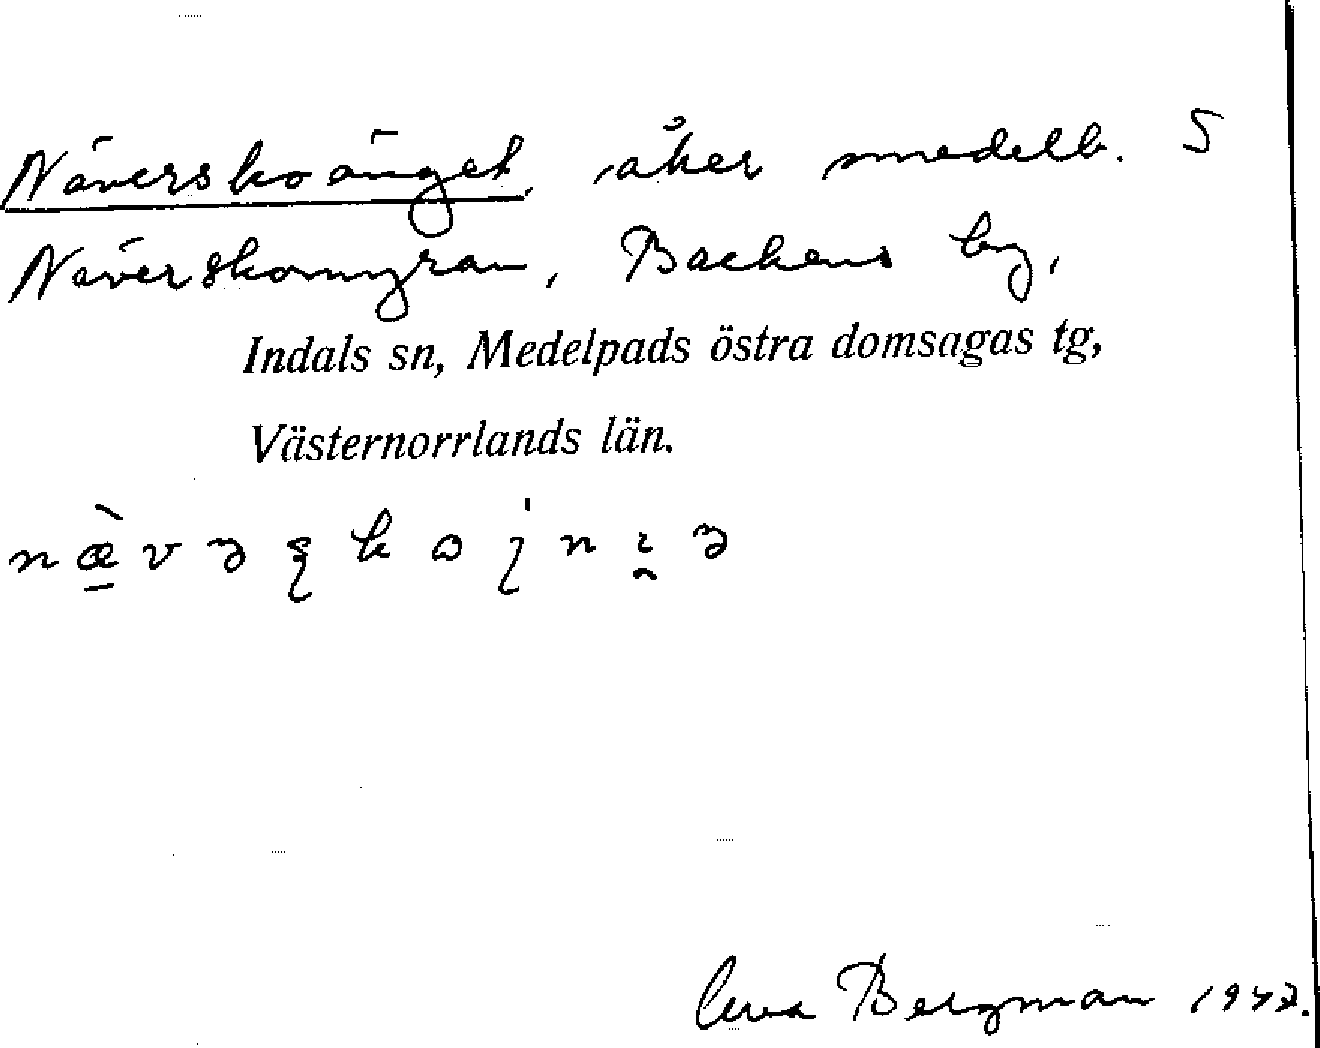 Näverskoänget, åker medelb. S
Näverskomyran, Backens by,
Indals sn, Medelpads östra domsagas tg,
Västernorrlands län.
Bergman 1942.